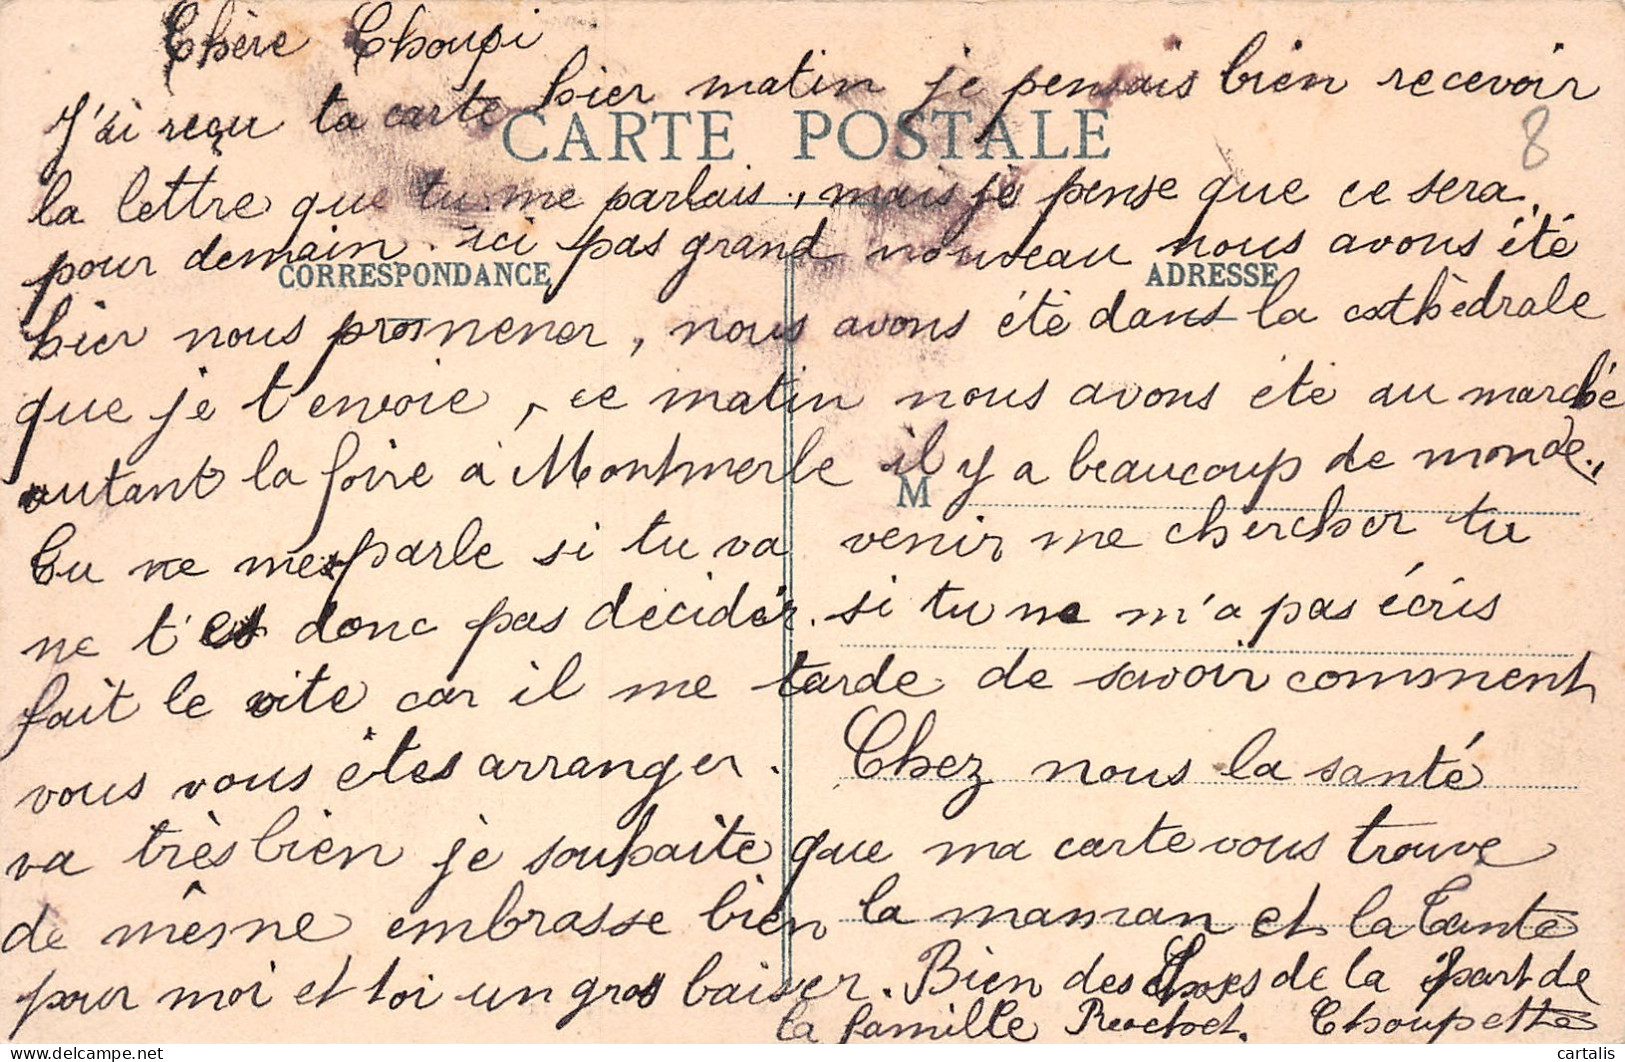 Chère Choupi
J'ai reçu ta carte hier matin je pensais bien recevoir
CARTE POSTALE
8
la lettre que tu me parlais, mais je pense que ce sera
pour demain. ici pas grand nouveau nous avons été
CORRESPONDANCE
ADRESSE
hier nous promener, nous avons été dans la cathèdrale
que je t'envoie, ce matin nous avons été au marché
autant la foire à Montmerle il y a beaucoup de monde.
M
Tu ne me parle si tu va venir me chercher tu
ne t'es donc pas decidér. si tu ne m'a pas écris
fait le vite car il me tarde de savoir comment
vous vous êtes arranger. Chez nous la santé
va très bien je souhaite que ma carte vous trouve
de même embrasse bien la maman et la Tante
pour moi et toi un gros baiser. Bien des choses de la part de
la famille Choupette
cartalis